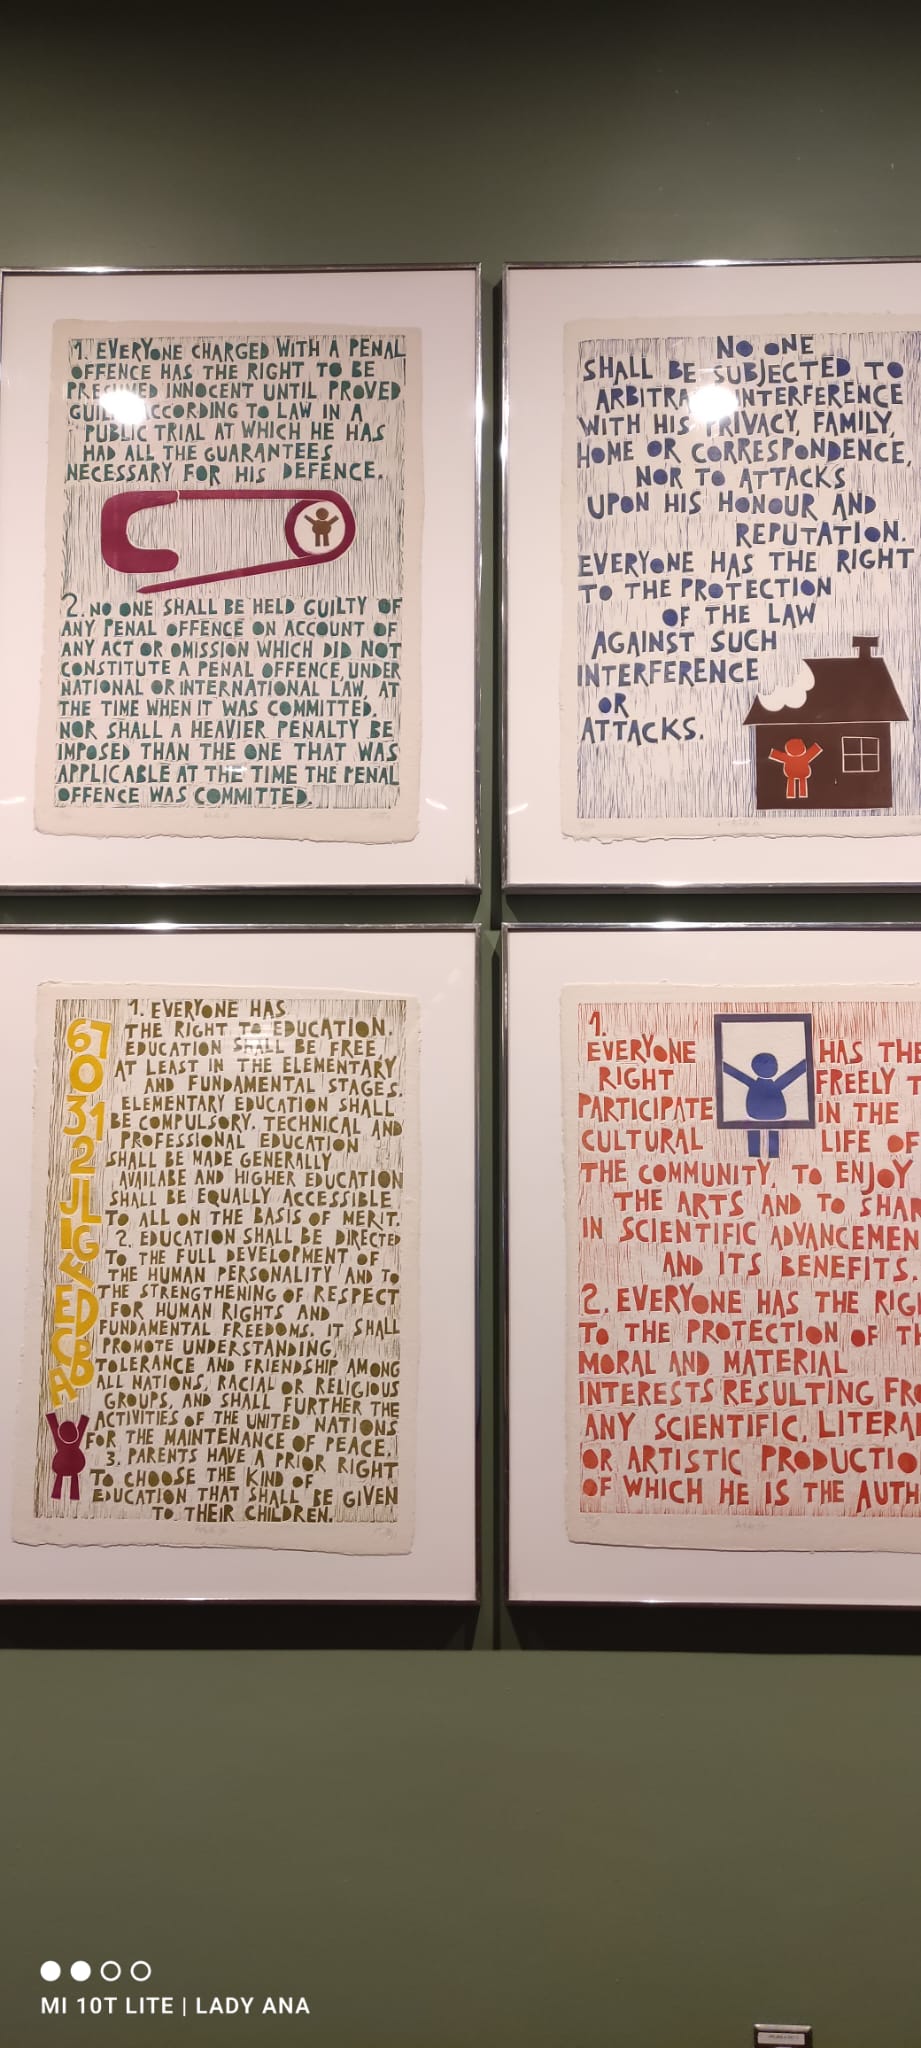 1. EVERYONE CHARGED WITH A PENAL
OFFENCE HAS THE RIGHT TO BE
PRESUMED INNOCENT UNTIL PROVED
GUILTY ACCORDING TO LAW IN A
PUBLIC TRIAL AT WHICH HE HAS
HAD ALL THE GUARANTEES
NECESSARY FOR HIS DEFENCE.
2. NO ONE SHALL BE HELD GUILTY OF
ANY PENAL OFFENCE ON ACCOUNT OF
ANY ACT OR OMISSION WHICH DID NOT
CONSTITUTE A PENAL OFFENCE, UNDER
NATIONAL OR INTERNATIONAL LAW, AT
THE TIME WHEN IT WAS COMMITTED.
NOR SHALL A HEAVIER PENALTY BE
IMPOSED THAN THE ONE THAT WAS
APPLICABLE AT THE TIME THE PENAL
OFFENCE WAS COMMITTED.
NO ONE
SHALL BE SUBJECTED TO
ARBITRARY INTERFERENCE
WITH HIS PRIVACY, FAMILY,
HOME OR CORRESPONDENCE,
NOR TO ATTACKS
UPON HIS HONOUR AND
REPUTATION.
EVERYONE HAS THE RIGHT
TO THE PROTECTION
OF THE LAW
AGAINST SUCH
INTERFERENCE
OR
ATTACKS.
67
0
31
2
JL
IG
F
ED
CB
A
1. EVERYONE HAS
THE RIGHT TO EDUCATION.
EDUCATION SHALL BE FREE,
AT LEAST IN THE ELEMENTARY
AND FUNDAMENTAL STAGES.
ELEMENTARY EDUCATION SHALL
BE COMPULSORY. TECHNICAL AND
PROFESSIONAL EDUCATION
SHALL BE MADE GENERALLY
AVAILABE AND HIGHER EDUCATION
SHALL BE EQUALLY ACCESSIBLE
TO ALL ON THE BASIS OF MERIT.
2. EDUCATION SHALL BE DIRECTED
TO THE FULL DEVELOPMENT OF
THE HUMAN PERSONALITY AND TO
THE STRENGTHENING OF RESPECT
FOR HUMAN RIGHTS AND
FUNDAMENTAL FREEDOMS. IT SHALL
PROMOTE UNDERSTANDING,
TOLERANCE AND FRIENDSHIP AMONG
ALL NATIONS, RACIAL OR RELIGIOUS
GROUPS, AND SHALL FURTHER THE
ACTIVITIES OF THE UNITED NATIONS
FOR THE MAINTENANCE OF PEACE.
3. PARENTS HAVE A PRIOR RIGHT
TO CHOOSE THE KIND OF
EDUCATION THAT SHALL BE GIVEN
TO THEIR CHILDREN.
1.
EVERYONE HAS THE
RIGHT FREELY T
PARTICIPATE IN THE
CULTURAL LIFE OF
THE COMMUNITY, TO ENJOY
THE ARTS AND TO SHAR
IN SCIENTIFIC ADVANCEMEN
AND ITS BENEFITS.
2. EVERYONE HAS THE RIG
TO THE PROTECTION OF TH
MORAL AND MATERIAL
INTERESTS RESULTING FRO
ANY SCIENTIFIC, LITERA
OR ARTISTIC PRODUCTIO
OF WHICH HE IS THE AUTH
MI 10T LITE | LADY ANA